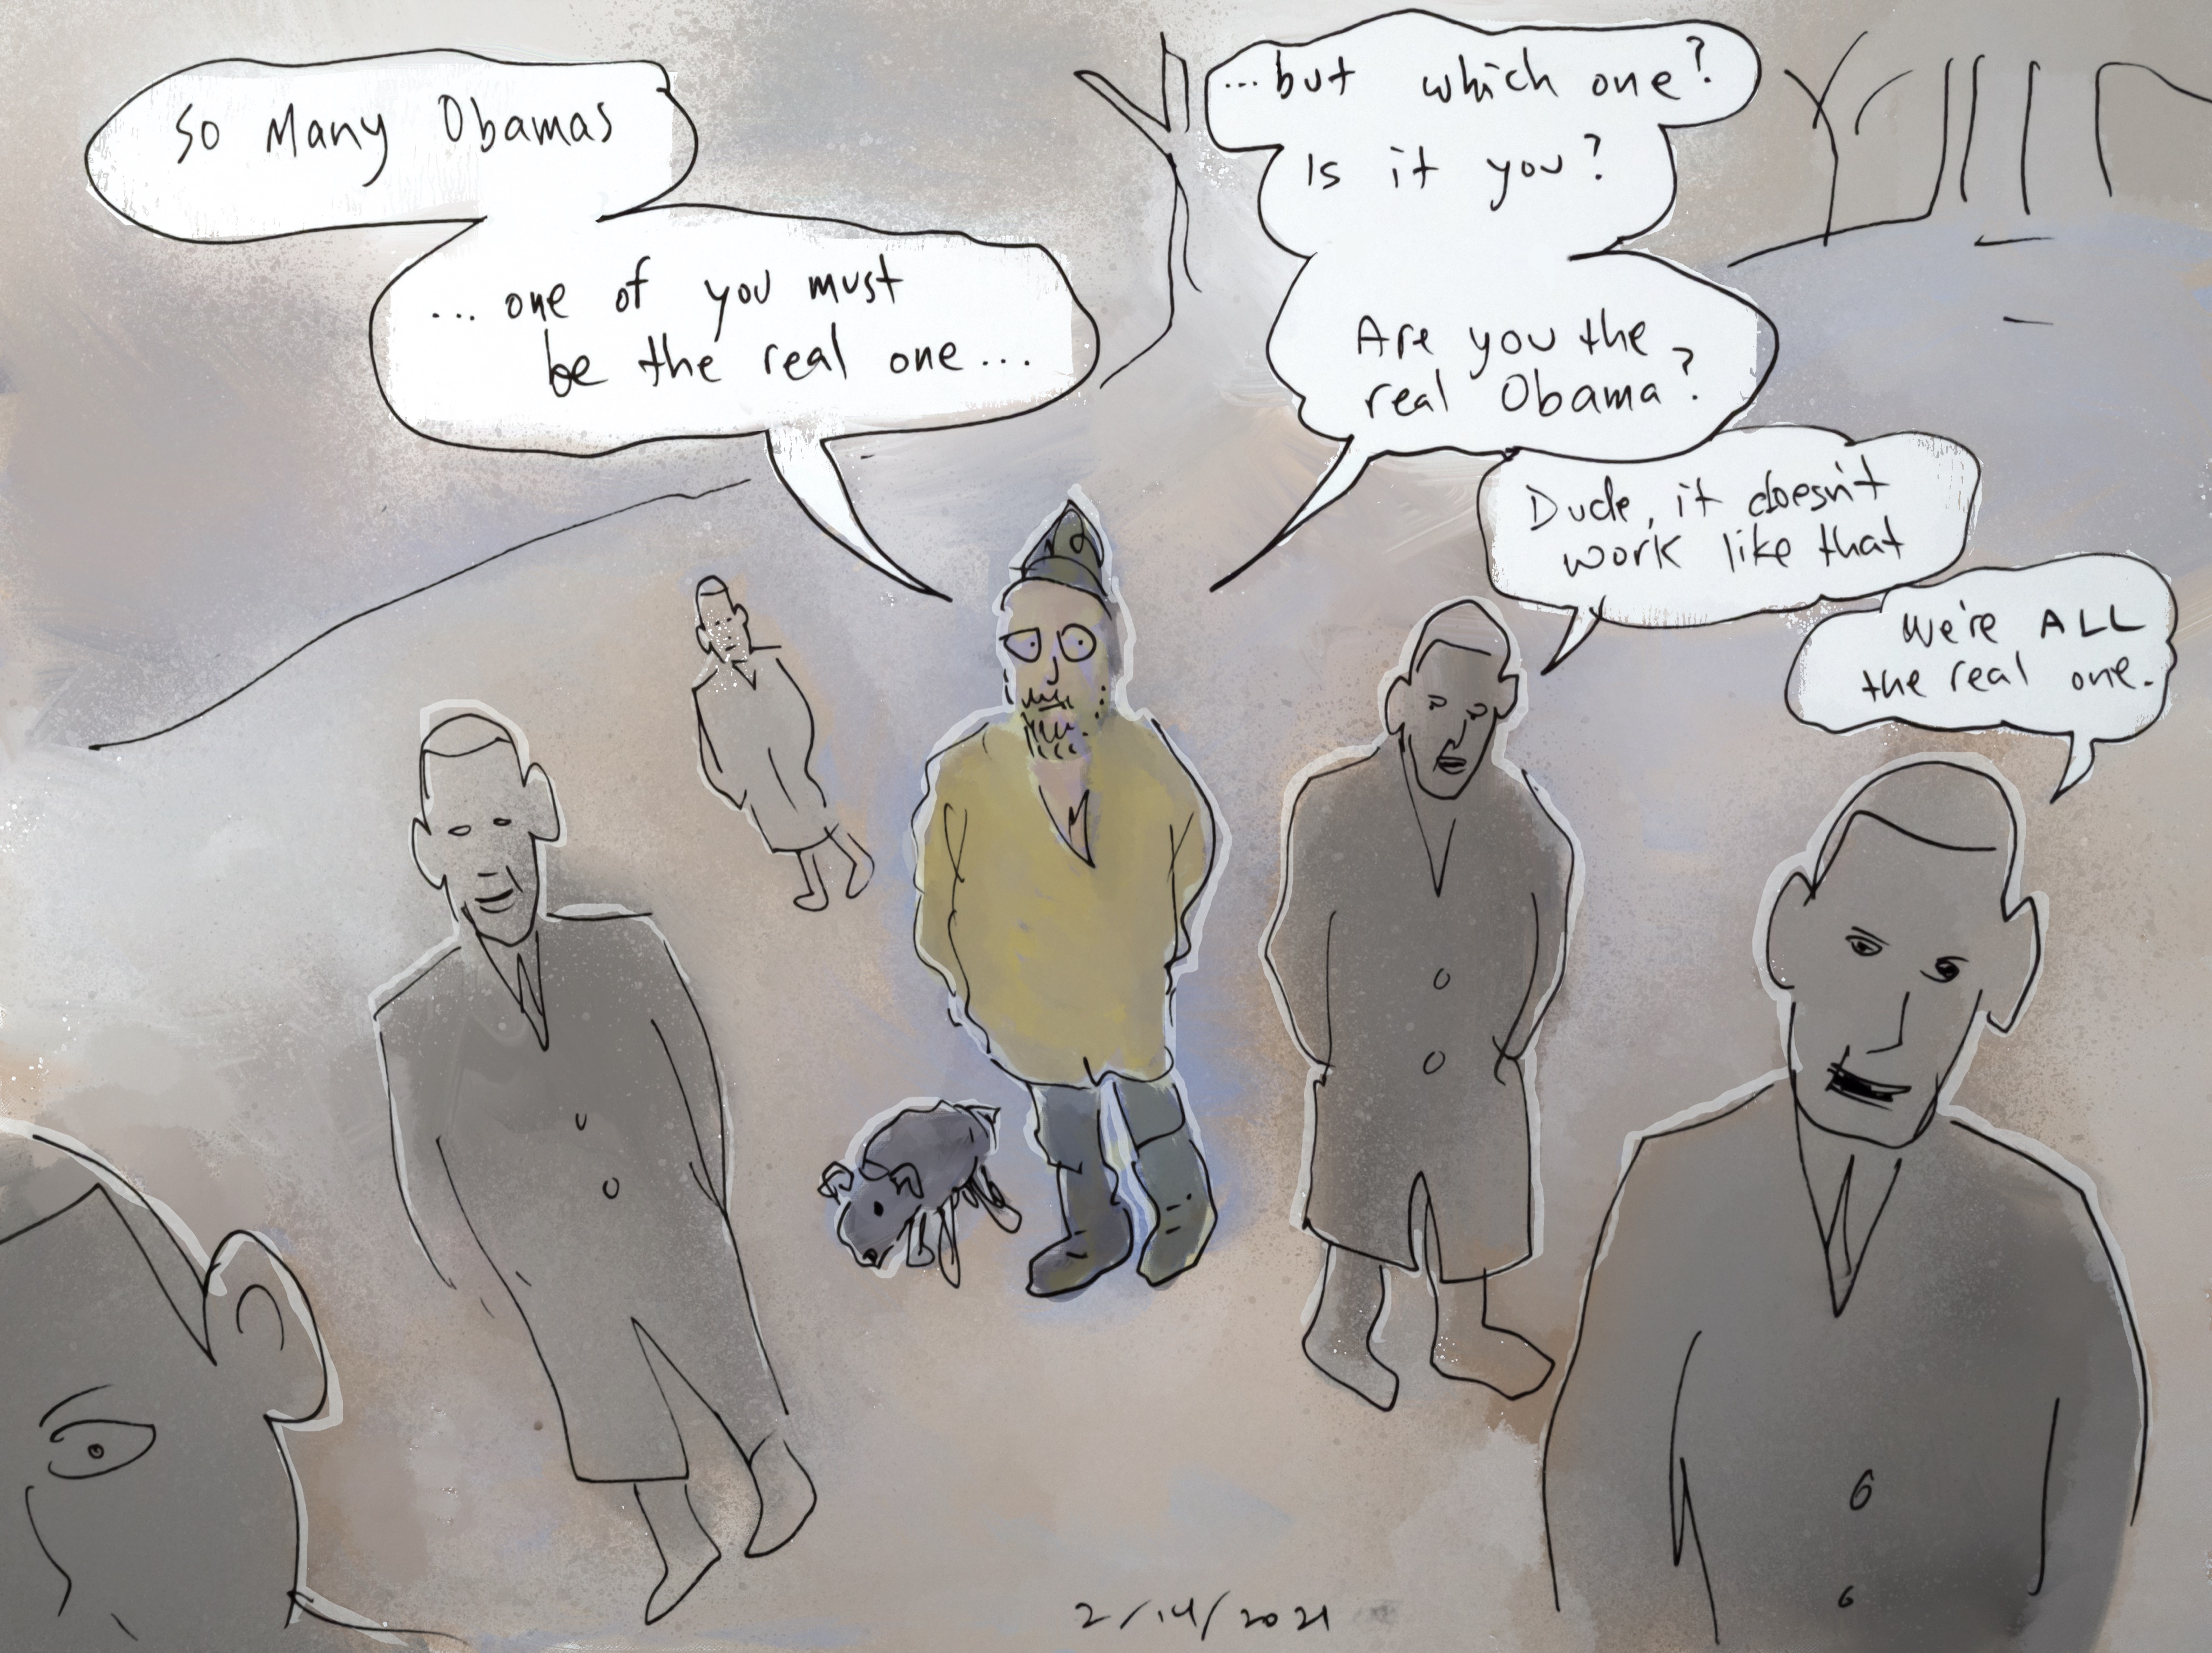 So Many Obamas
... one of you must
be the real one...
...but which one?
Is it you?
Are you the
real Obama?
Dude, it doesn't
work like that
We're ALL
the real one.
2/14/2021